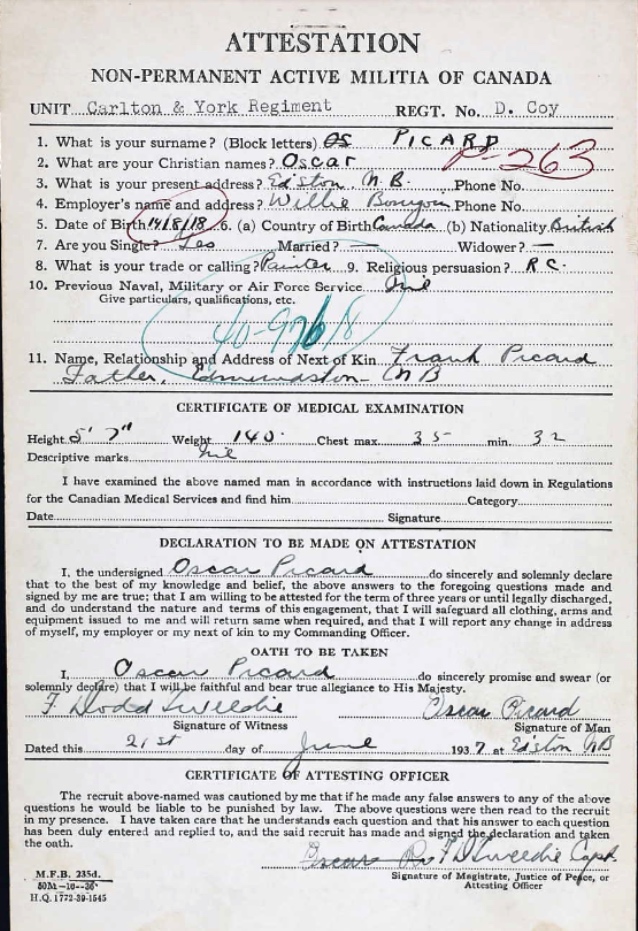 ATTESTATION
NON-PERMANENT ACTIVE MILITIA OF CANADA
UNIT Carlton & York Regiment REGT. No. D. Coy
1. What is your surname? (Block letters) OS PICARD
P-263
2. What are your Christian names? Oscar
3. What is your present address? Ed'ston. N.B. Phone No.
4. Employer's name and address? Willie Phone No.
5. Date of Birth 14/8/18 6. (a) Country of Birth Canada (b) Nationality British
7. Are you Single? Yes Married? — Widower? —
8. What is your trade or calling? Painter 9. Religious persuasion? R C.
10. Previous Naval, Military or Air Force Service Nil
Give particulars, qualifications, etc.
40-976/8
11. Name, Relationship and Address of Next of Kin Frank Picard
Father, Edmundston - N B
CERTIFICATE OF MEDICAL EXAMINATION
Height 5' 7" Weight 140. Chest max. 35 min. 32
Descriptive marks Nil
I have examined the above named man in accordance with instructions laid down in Regulations
for the Canadian Medical Services and find him Category
Date Signature
DECLARATION TO BE MADE ON ATTESTATION
I, the undersigned Oscar Picard do sincerely and solemnly declare
that to the best of my knowledge and belief, the above answers to the foregoing questions made and
signed by me are true; that I am willing to be attested for the term of three years or until legally discharged,
and do understand the nature and terms of this engagement, that I will safeguard all clothing, arms and
equipment issued to me and will return same when required, and that I will report any change in address
of myself, my employer or my next of kin to my Commanding Officer.
OATH TO BE TAKEN
I, Oscar Picard do sincerely promise and swear (or
solemnly declare) that I will be faithful and bear true allegiance to His Majesty.
F. Dodd Tweedie Oscar Picard
Signature of Witness Signature of Man
Dated this 21st day of June 1937 at Ed'ston NB
CERTIFICATE OF ATTESTING OFFICER
The recruit above-named was cautioned by me that if he made any false answers to any of the above
questions he would be liable to be punished by law. The above questions were then read to the recruit
in my presence. I have taken care that he understands each question and that his answer to each question
has been duly entered and replied to, and the said recruit has made and signed the declaration and taken
the oath.
Oscar F D Tweedie Capt.
Signature of Magistrate, Justice of Peace, or
Attesting Officer
M.F.B. 235d.
50M-10-36
H.Q. 1772-39-1545